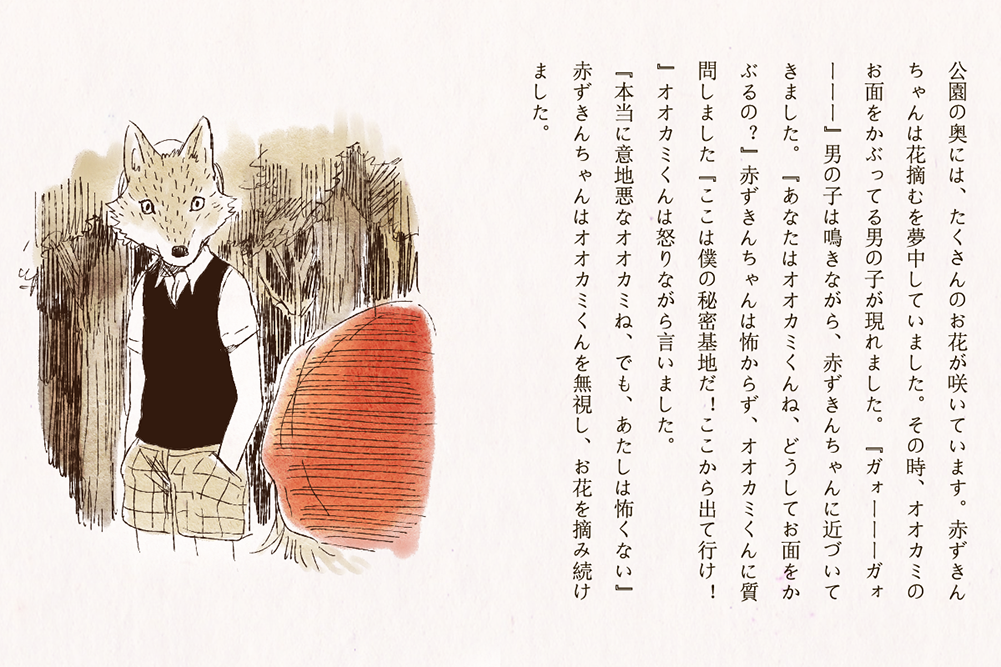 公園の奥には、たくさんのお花が咲いています。赤ずきん
ちゃんは花摘むを夢中していました。その時、オオカミの
お面をかぶってる男の子が現れました。『ガォーーーガォ
ーーー』男の子は鳴きながら、赤ずきんちゃんに近づいて
きました。『あなたはオオカミくんね、どうしてお面をか
ぶるの？』赤ずきんちゃんは怖からず、オオカミくんに質
問しました『ここは僕の秘密基地だ！ここから出て行け！
』オオカミくんは怒りながら言いました。
『本当に意地悪なオオカミね、でも、あたしは怖くない』
赤ずきんちゃんはオオカミくんを無視し、お花を摘み続け
ました。